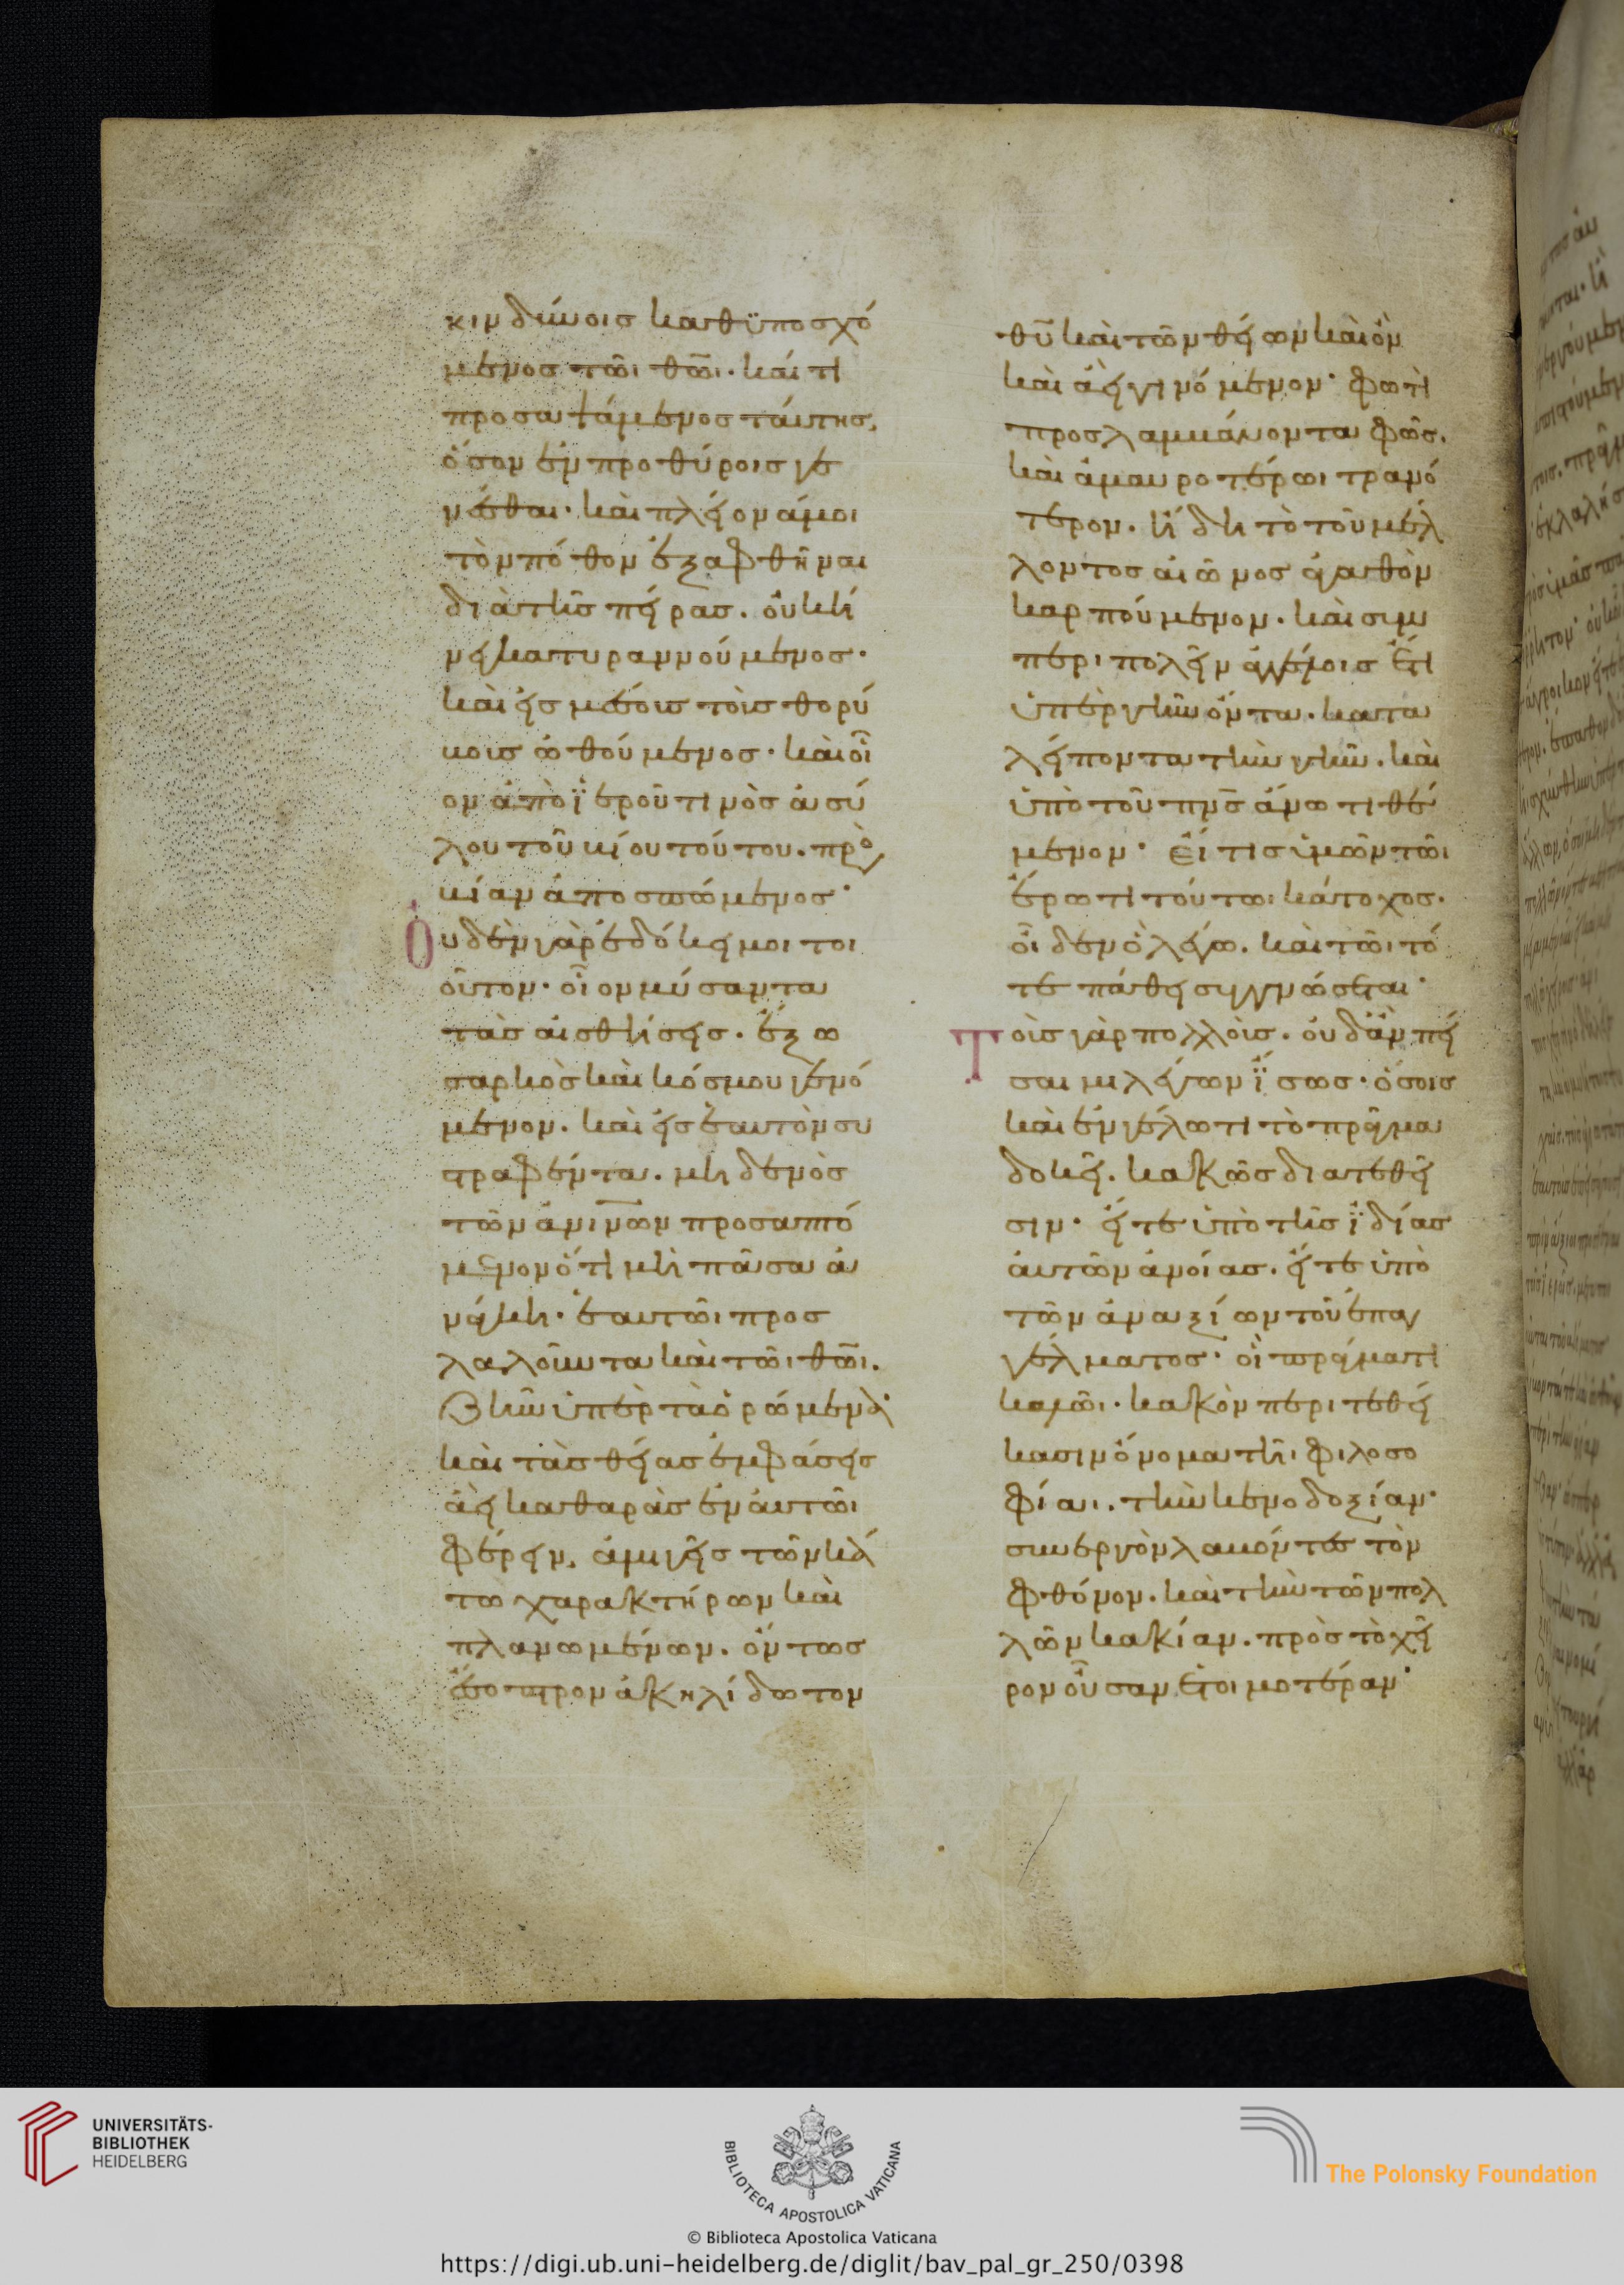 κινδύνοις καθϋποσχό
μενος τῶι θ̅ῶι. καί τι
προσαψάμενος ταύτης,
ὅσον ἐν προθύροις γε
νέσθαι. καὶ πλείονά μοι
τὸν πόθον ἐξαφθῆναι
διὰ τῆς πείρας. οὐκ ἤ
νεγκα τυραννούμενος.
καὶ εἰς μέσους τοὺς θορύ
βους ὠθούμενος. καὶ οἷ
ον ἀπὸ ϊεροῦ τινὸς ἀσύ
λου τοῦ βίου τούτου. πρὸς
βίαν ἀποσπώμενος·
Οὐδὲν γὰρ ἐδόκει μοι τοι
οῦτον. οἷον μύσαντα
τὰς αἰσθήσεις. ἔξω
σαρκὸς καὶ κόσμου γενό
μενον. καὶ εἰς ἑαυτὸν συ
στραφέντα. μηδενὸς
τῶν ἀν̅ίνων προσαπτό
μενον ὅτι μὴ πᾶσα ἀ
νάγκη. ἑαυτῶι προσ
λαλοῦντα καὶ τῶι θ̅ῶι.
ζῆν ὑπὲρ τὰ ὁρώμενα·
καὶ τὰς θείας ἐμφάσεις
ἀεὶ καθαρὰς ἐν αὐτῶι
φέρειν, ἀμιγεῖς τῶν κά
τω χαρακτήρων καὶ
πλανωμένων. ὄντως
ἔσοπτρον ἀκηλίδωτον
θ̅υ καὶ τῶν θείων καὶ ὂν
καὶ ἀεὶ γινόμενον· φωτὶ
προσλαμβάνοντα φῶς.
καὶ ἀμαυροτέρωι τρανό
τερον. ἤδη τὸ τοῦ μέλ
λοντος αἰῶνος ἀγαθὸν
καρπούμενον. καὶ συμ
περιπολεῖν ἀγγέλοις ἔτι
ὑπὲρ γῆν ὄντα. κατα
λείποντα τὴν γῆν. καὶ
ὑπὸ τοῦ π̅ν̅ς ἄνω τιθέ
μενον· Εἴ τις ὑμῶν τῶι
ἔρωτι τούτωι κάτοχος.
οἶδεν ὃ λέγω. καὶ τῶι τό
τε πάθει συγγνώσεται·
Τοὺς γὰρ πολλοὺς. οὐδ' ἂν πεί
σαιμι λέγων ϊσως· ὅσοις
καὶ ἐν γέλωτι τὸ πρᾶγμα
δοκεῖ. κακῶς διατεθεῖ
σιν· εἴτε ὑπὸ τῆς ϊδίας
αὐτῶν ἀνοίας. εἴτε ὑπὸ
τῶν ἀναξίων τοῦ ἐπαγ
γέλματος· οἳ πράγματι
καλῶι. κακὸν περιτεθεί
κασιν ὄνομα τῆι φιλοσο
φίαι. τὴν κενοδοξίαν·
συνεργὸν λαβόντες τὸν
φθόνον. καὶ τὴν τῶν πολ
λῶν κακίαν. πρὸς τὸ χεῖ
ρον οὖσαν ἑτοιμοτέραν·
UNIVERSITÄTS-
BIBLIOTHEK
HEIDELBERG
BIBLIOTECA APOSTOLICA VATICANA
The Polonsky Foundation
© Biblioteca Apostolica Vaticana
https://digi.ub.uni-heidelberg.de/diglit/bav_pal_gr_250/0398